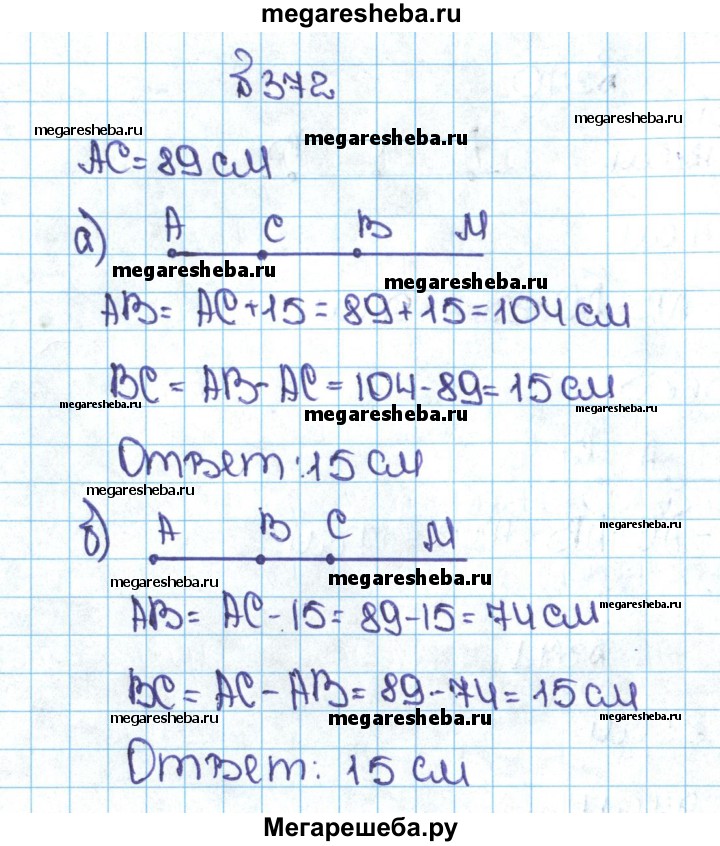 megaresheba.ru
№ 372
megaresheba.ru
megaresheba.ru
megaresheba.ru
AC = 89 см
а) A C B M
megaresheba.ru
megaresheba.ru
AB = AC + 15 = 89 + 15 = 104 см
BC = AB - AC = 104 - 89 = 15 см
megaresheba.ru
megaresheba.ru
megaresheba.ru
Ответ: 15 см
megaresheba.ru
б) A B C M
megaresheba.ru
megaresheba.ru
megaresheba.ru
AB = AC - 15 = 89 - 15 = 74 см
megaresheba.ru
BC = AC - AB = 89 - 74 = 15 см
megaresheba.ru
megaresheba.ru
megaresheba.ru
Ответ: 15 см
Мегарешеба.ру